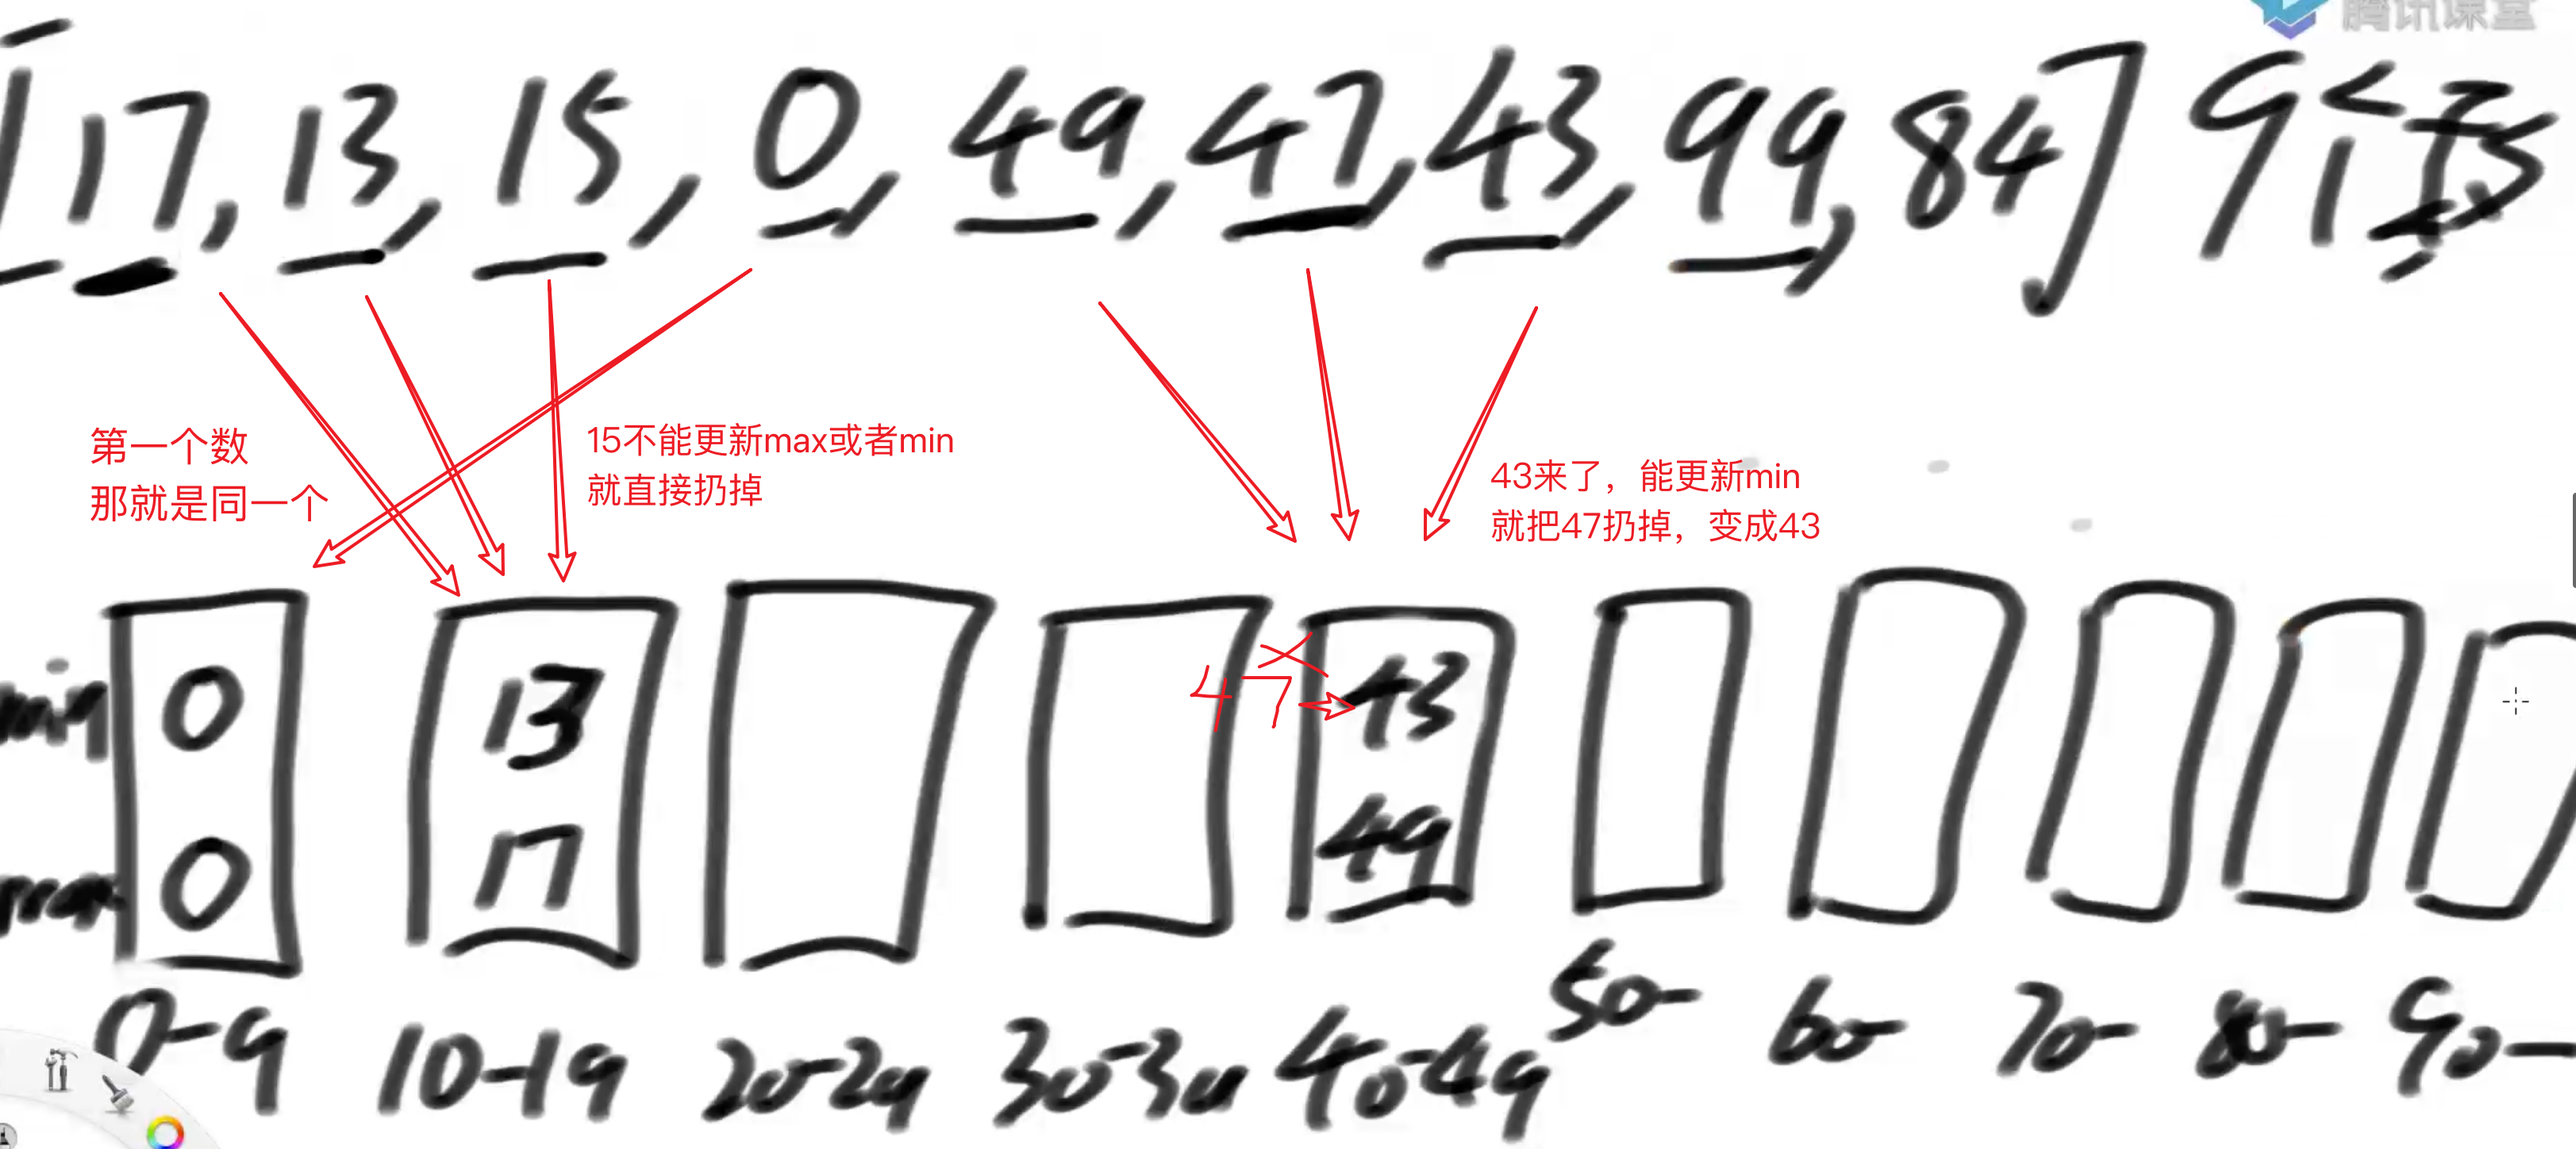 腾讯课堂
[17, 13, 15, 0, 49, 47, 43, 99, 84] 9个
第一个数
那就是同一个
15不能更新max或者min
就直接扔掉
43来了，能更新min
就把47扔掉，变成43
47
min 0 13 43
max 0 17 49
0-9 10-19 20-29 30-39 40-49 50- 60- 70- 80- 90-